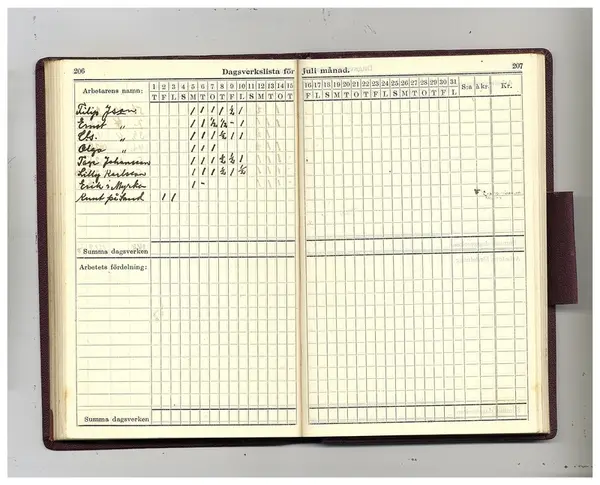 206 Dagsverkslista för Juli månad. 207
Arbetarens namn: 1 2 3 4 5 6 7 8 9 10 11 12 13 14 15 16 17 18 19 20 21 22 23 24 25 26 27 28 29 30 31 S:a Kr.
T F L S M T O T F L S M T O T F L S M T O T F L S M T O T F L
Filip 1 1 1 1 ½ 1
Ernst „ 1 1 ½ ½ - 1
Ebs. „ 1 1 1 ½ 1 1
Olga „ 1 1 1
Tage Johansson 1 1 1 ½ ½ 1
Lilly Karlsson 1 1 1 ½ 1 ½
Erik i 1 -
Knut på 1 1
Summa dagsverken
Arbetets fördelning:
Summa dagsverken